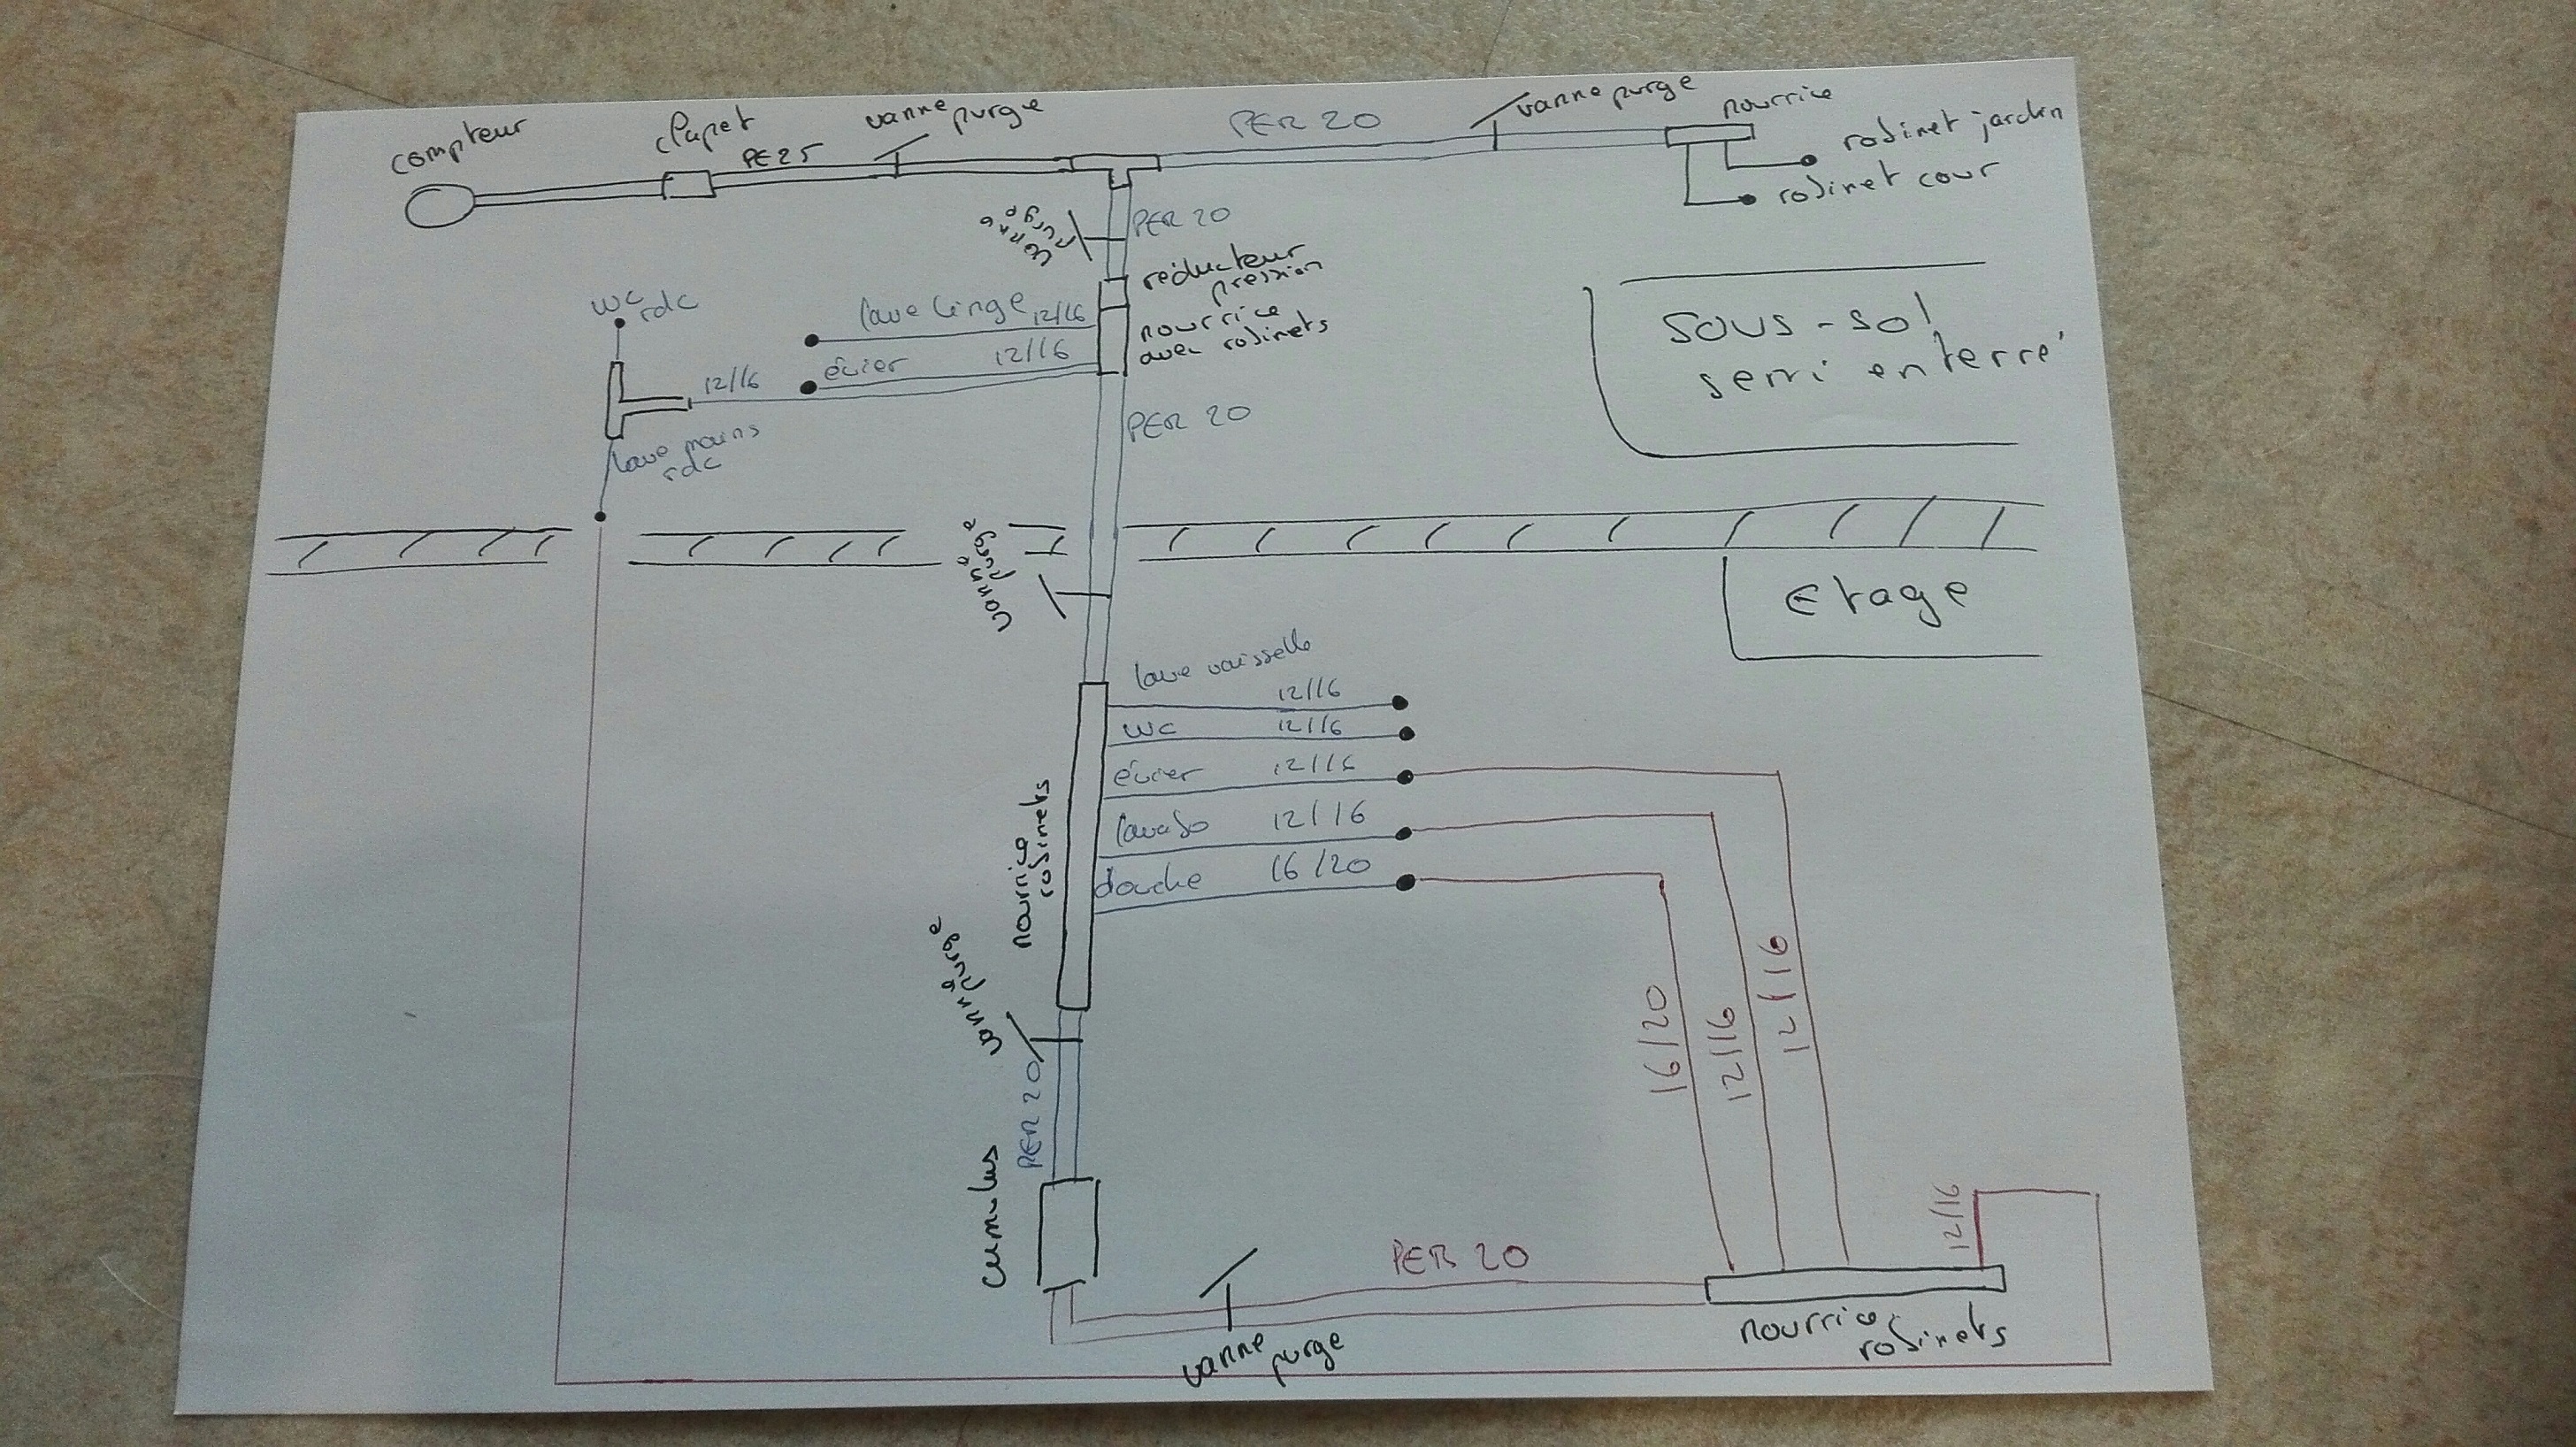 compteur
clapet
PE 25
vanne purge
PER 20
vanne purge
nourrice
robinet jardin
robinet cour
vanne
purge
PER 20
réducteur
pression
nourrice
avec robinets
wc
rdc
lave linge 12/16
évier 12/16
12/16
lave mains
rdc
PER 20
sous-sol
semi enterré
vanne
purge
Etage
lave vaisselle
12/16
wc 12/16
évier 12/16
lavabo 12/16
douche 16/20
nourrice
robinets
vanne purge
PER 20
cumulus
16/20
12/16
12/16
12/16
PER 20
vanne
purge
nourrice
robinets